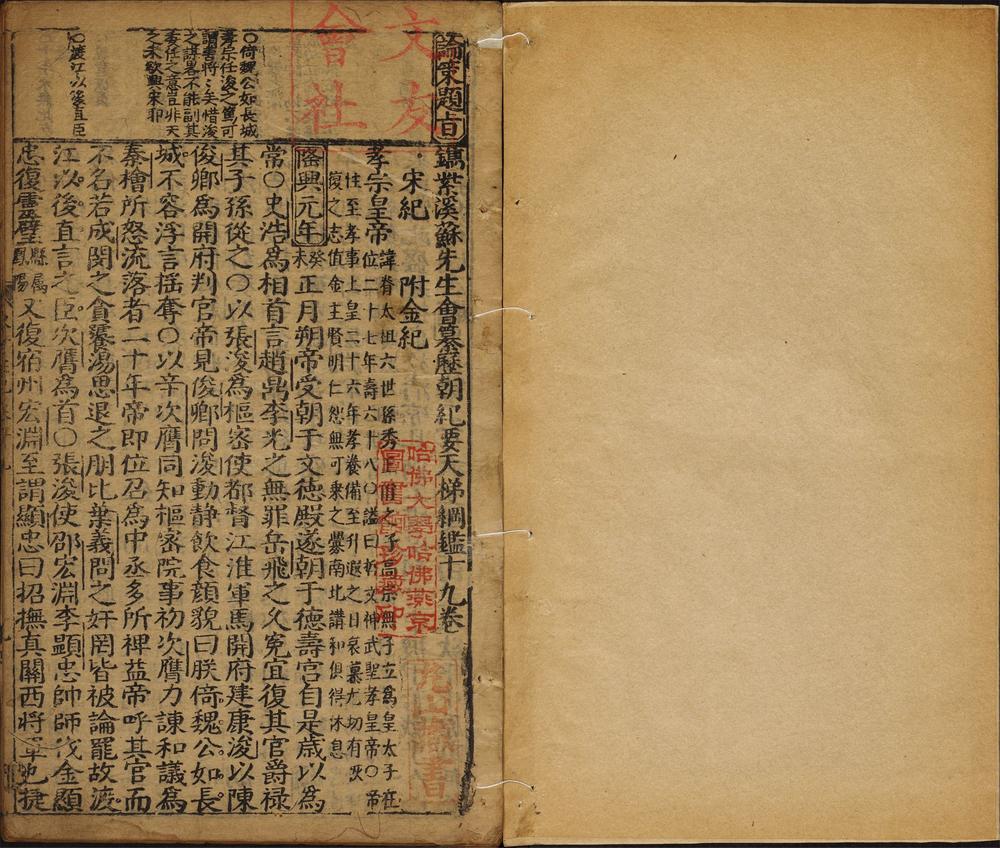 論策題旨
鐫紫溪蘇先生會纂歷朝紀要天梯綱鑑十九卷
宋紀　附金紀
孝宗皇帝
諱眘太祖六世孫秀王偁之子高宗無子立為皇太子在
位二十七年壽六十八〇謚曰哲文神武聖孝皇帝〇帝
性至孝事上皇二十六年孝養備至升遐之日哀慕尤切有
復之志值金主賢明仁恕無可乗之釁南北講和俱得休息
隆興元年
癸未
正月朔帝受朝于文德殿遂朝于德壽宮自是歲以為
常〇史浩為相首言趙鼎李光之無罪岳飛之久冤宜復其官爵祿
其子孫從之〇以張浚為樞密使都督江淮軍馬開府建康浚以陳
俊卿為開府判官帝見俊卿問浚動靜飲食顏貌曰朕倚魏公如長
城不容浮言搖奪〇以辛次膺同知樞密院事初次膺力諫和議為
秦檜所怒流落者二十年帝即位召為中丞多所裨益帝呼其官而
不名若成閔之貪饕湯思退之朋比葉義問之奸罔皆被論罷故渡
江以後直言之臣次膺為首〇張浚使邵宏淵李顯忠帥師伐金顯
忠復靈壁
縣屬
鳳陽
又復宿州宏淵至謂顯忠曰招撫真關西將軍也捷
〇倚魏公如長城
孝宗任浚之篤可
謂善將將矣惜浚
之謀畧不能副其
委任之意豈非天
之未欲興宋耶
〇渡江以後直臣
文友
會社
哈佛大學哈佛燕京
圖書館珍藏印